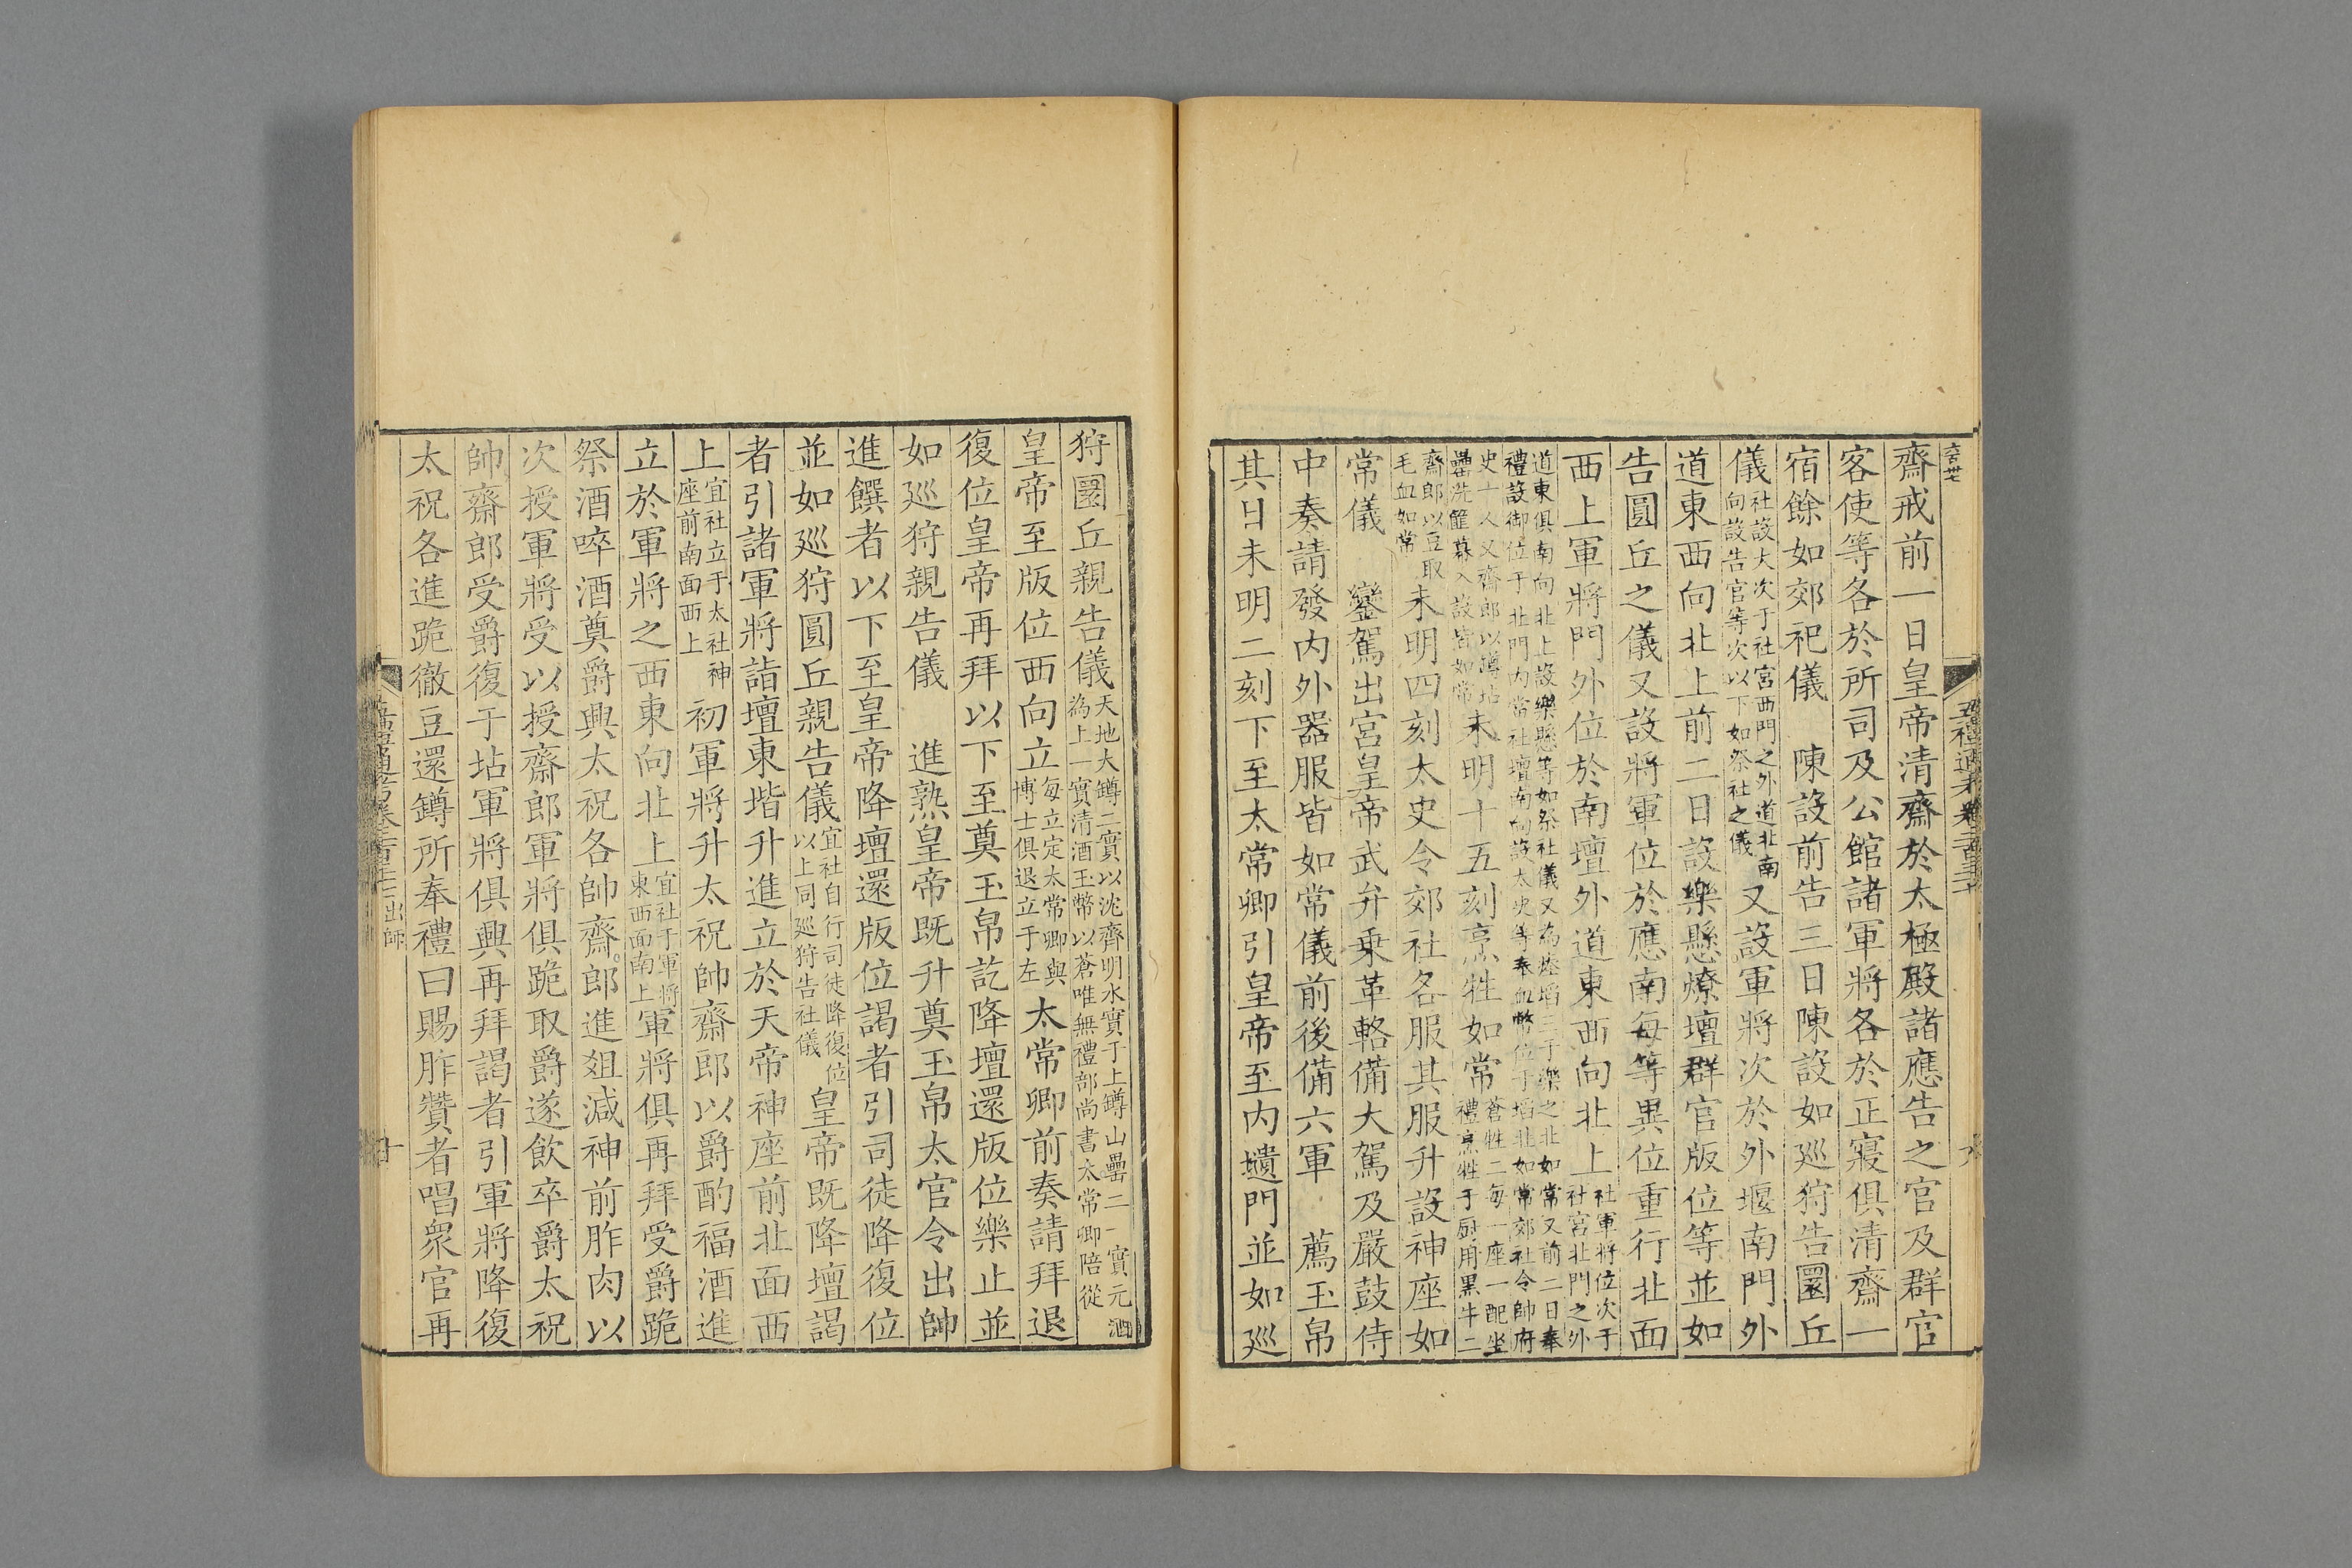 齋戒前一日皇帝清齋於太極殿諸應告之官及群官
客使等各於所司及公館諸軍將各於正寢俱清齋一
宿餘如郊祀儀　陳設前告三日陳設如巡狩告圜丘
儀社設大次于社宮西門之外道北南向設告官等次以下如祭社之儀又設軍將次於外壝南門外
道東西向北上前二日設樂懸燎壇群官版位等並如
告圓丘之儀又設將軍位於應南每等異位重行北面
西上軍將門外位於南壇外道東西向北上社軍將位次于社宮北門之外
道東俱南向北上設樂懸等如祭社儀又為瘞埳三于樂之北如常又前二日奉
禮設御位于北門內當社壇南向設太史等奉血幣位于埳北如常郊社令帥府
史十人又齋郎以罇坫罍洗篚幕入設皆如常未明十五刻烹牲如常蒼牲二每一座一配坐禮烹牲于厨用黑牛二
齋郎以豆取毛血如常未明四刻太史令郊社各服其服升設神座如
常儀　鑾駕出宮皇帝武弁乗革輅備大駕及嚴鼓侍
中奏請發内外器服皆如常儀前後備六軍　薦玉帛
其日未明二刻下至太常卿引皇帝至内壝門並如巡
狩圜丘親告儀天地大罇二實以沈齊明水實于上罇山罍二一實元酒為上一實清酒玉幣以蒼唯無禮部尚書太常卿陪從
皇帝至版位西向立每立定太常卿與博士俱退立于左太常卿前奏請拜退
復位皇帝再拜以下至奠玉帛訖降壇還版位樂止並
如巡狩親告儀　進熟皇帝既升奠玉帛太官令出帥
進饌者以下至皇帝降壇還版位謁者引司徒降復位
並如巡狩圓丘親告儀宜社自行司徒降復位以上同巡狩告社儀皇帝既降壇謁
者引諸軍將詣壇東堦升進立於天帝神座前北面西
上宜社立于太社神座前南面西上初軍將升太祝帥齋郎以爵酌福酒進
立於軍將之西東向北上宜社于軍將東西面南上軍將俱再拜受爵跪
祭酒啐酒奠爵興太祝各帥齋郎進俎減神前胙肉以
次授軍將受以授齋郎軍將俱跪取爵遂飲卒爵太祝
帥齋郎受爵復于坫軍將俱興再拜謁者引軍將降復
太祝各進跪徹豆還罇所奉禮曰賜胙贊者唱眾官再